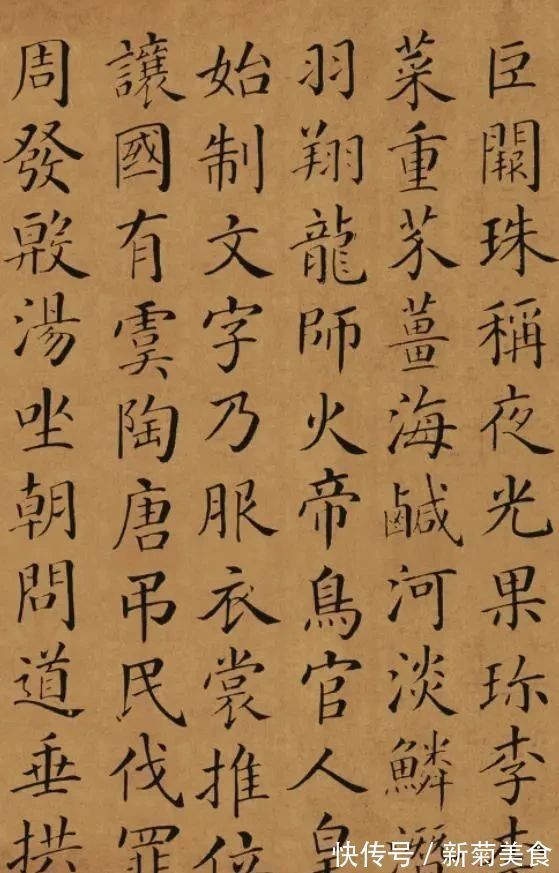 巨闕珠稱夜光果珎李
菜重芥薑海鹹河淡鱗
羽翔龍師火帝鳥官人皇
始制文字乃服衣裳推位
讓國有虞陶唐吊民伐罪
周發殷湯坐朝問道垂拱
快传号/新菊美食